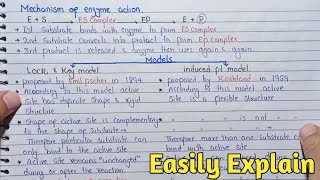 Mechanism of enzyme action.
E + S → ES complex → EP → E + P
1st Substrate binds with enzyme to form ES complex
2nd Substrate converts into product to form Ep complex
3rd product is released & enzyme then uses again & again
Models
Lock & Key model
induced fit model.
proposed by Emil fischer in 1894
proposed by Koshland in 1959
According to this model active
site has definite shape & rigid
structure
According to this model active
site is a flexible structure
Shape of active site is complementary
to the shape of Substrate
is not
Therefore particular substrate can
only bind to the active site
Therefore more than one substrate can
bind with active site
Active site remains "unchanged"
during or after the reaction
Easily Explain